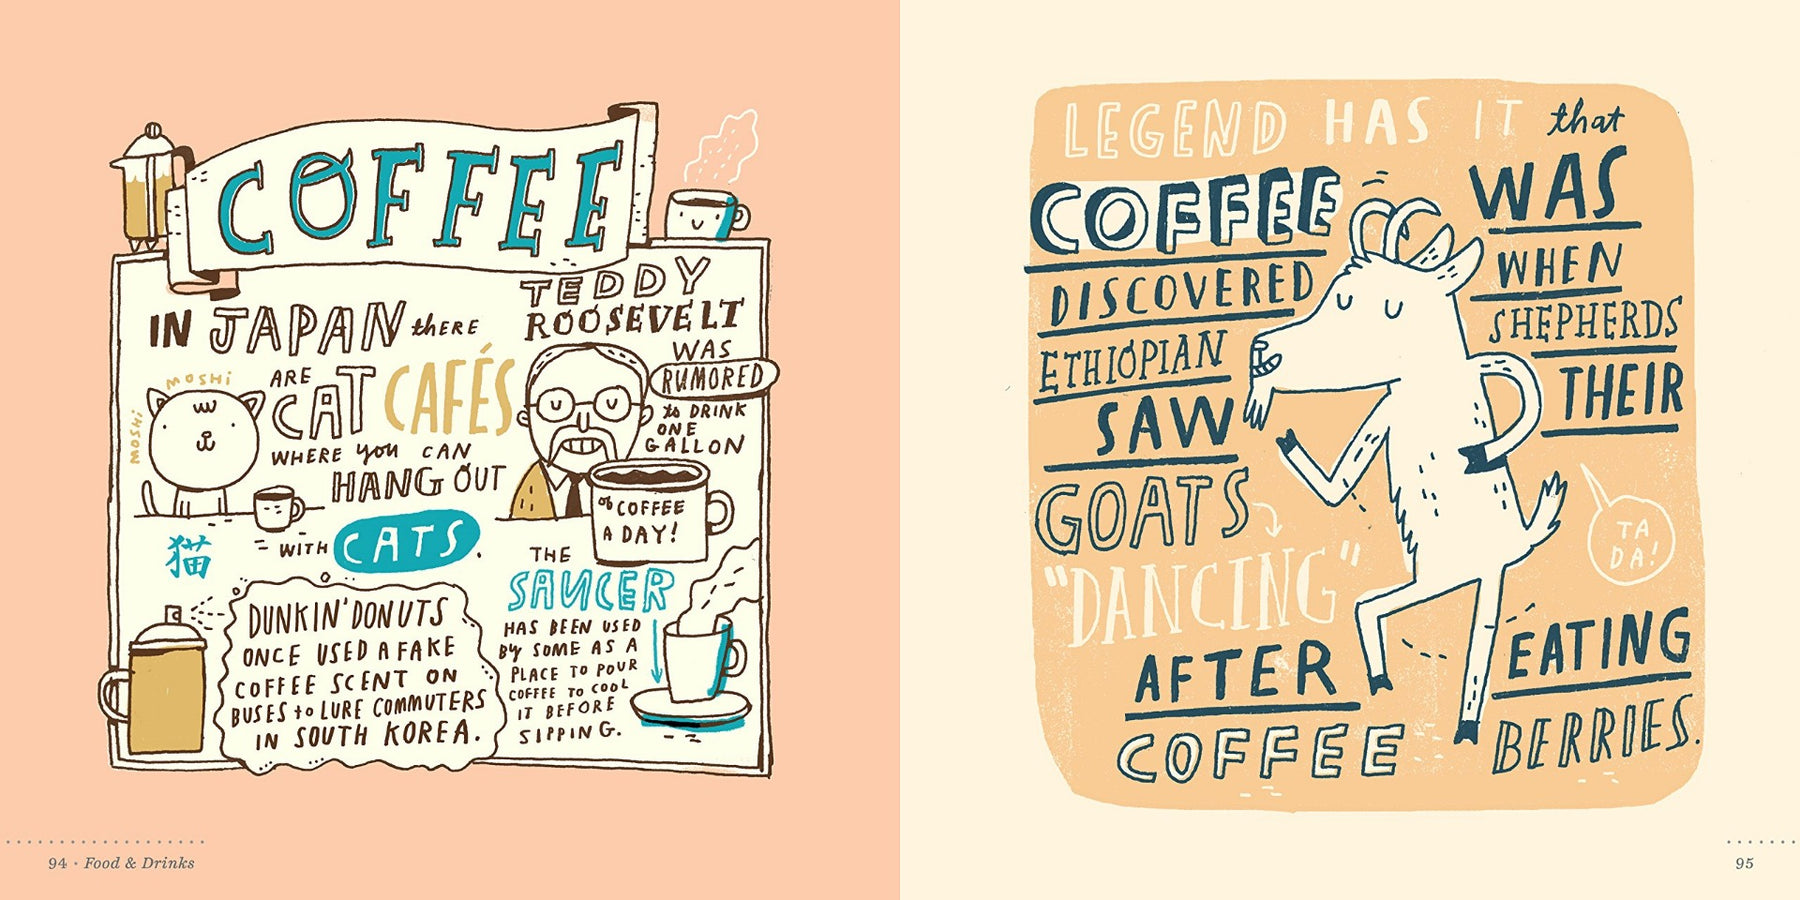 COFFEE
IN JAPAN there
ARE CAT CAFÉS
WHERE you CAN
HANG OUT
WITH CATS.
MOSHI
MOSHI
猫
TEDDY
ROOSEVELT
WAS
RUMORED
to DRINK
ONE
GALLON
of COFFEE
A DAY!
DUNKIN' DONUTS
ONCE USED A FAKE
COFFEE SCENT ON
BUSES to LURE COMMUTERS
IN SOUTH KOREA.
THE
SAUCER
HAS BEEN USED
By SOME AS A
PLACE TO POUR
COFFEE TO COOL
IT BEFORE
SIPPING.
94 • Food & Drinks
LEGEND HAS IT that
COFFEE WAS
DISCOVERED WHEN
ETHIOPIAN SHEPHERDS
SAW THEIR
GOATS
"DANCING"
TA
DA!
AFTER EATING
COFFEE BERRIES.
95